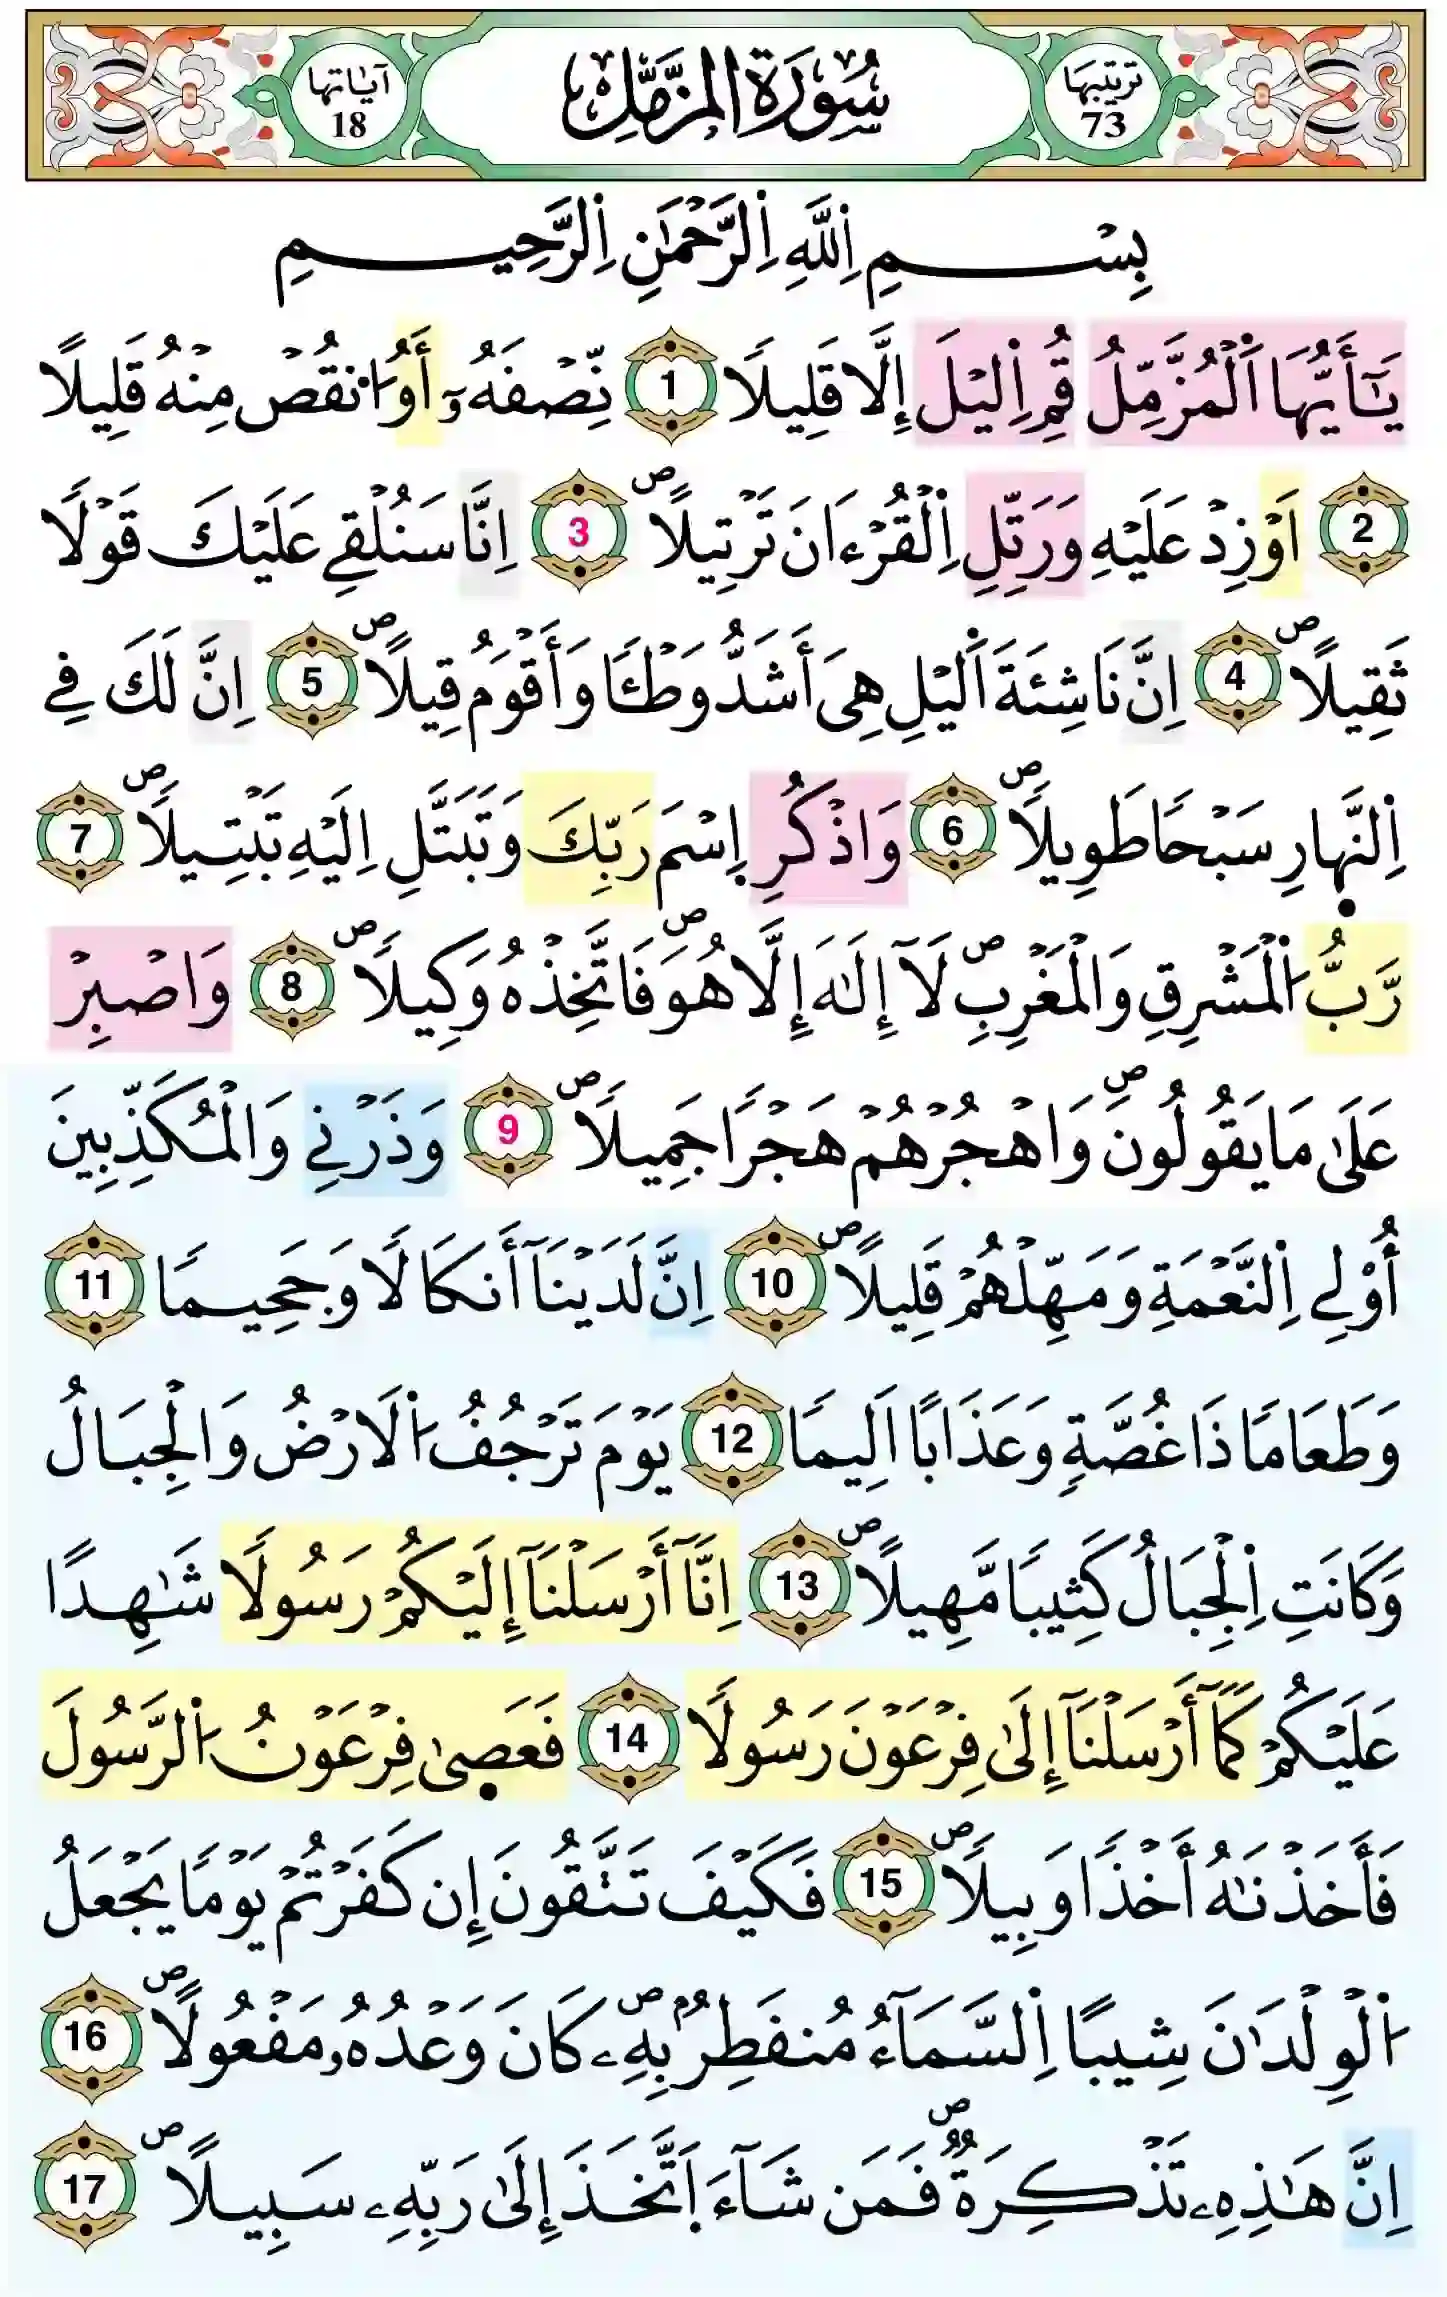 ترتيبها 73 سُورَةُ المُزَّمِّلِ آياتها 18
بِسْمِ اِللَّهِ اِلرَّحْمَٰنِ اِلرَّحِيمِ
يَٰٓأَيُّهَا اَلْمُزَّمِّلُ قُمِ اِليْلَ إِلَّا قَلِيلًا 1 نِّصْفَهُۥٓ أَوُ اُنقُصْ مِنْهُ قَلِيلًا
2 اَوْ زِدْ عَلَيْهِ وَرَتِّلِ اِلْقُرْءَانَ تَرْتِيلًاۖ 3 اِنَّا سَنُلْقِے عَلَيْكَ قَوْلًا
ثَقِيلًاۖ 4 اِنَّ نَاشِئَةَ اَليْلِ هِىَ أَشَدُّ وَطْـًٔا وَأَقْوَمُ قِيلًاۖ 5 اِنَّ لَكَ فِے
اِلنَّهارِ سَبْحًا طَوِيلًاۖ 6 وَاذْكُرِ اِسْمَ رَبِّكَ وَتَبَتَّلِ اِلَيْهِ تَبْتِيلًاۖ 7
رَّبُّ اُلْمَشْرِقِ وَالْمَغْرِبِۖ لَآ إِلَٰهَ إِلَّا هُوَۖ فَاتَّخِذْهُ وَكِيلًاۖ 8 وَاصْبِرْ
عَلَىٰ مَا يَقُولُونَۖ وَاهْجُرْهُمْ هَجْرًا جَمِيلًاۖ 9 وَذَرْنِے وَالْمُكَذِّبِينَ
أُوْلِے اِلنَّعْمَةِ وَمَهِّلْهُمْ قَلِيلًاۖ 10 اِنَّ لَدَيْنَآ أَنكَالًا وَجَحِيمًا 11
وَطَعَامًا ذَا غُصَّةٍ وَعَذَابًا اَلِيمًا 12 يَوْمَ تَرْجُفُ اُلَارْضُ وَالْجِبَالُ
وَكَانَتِ اِلْجِبَالُ كَثِيبًا مَّهِيلًاۖ 13 اِنَّآ أَرْسَلْنَآ إِلَيْكُمْ رَسُولًا شَٰهِدًا
عَلَيْكُمْ كَمَآ أَرْسَلْنَآ إِلَىٰ فِرْعَوْنَ رَسُولًا 14 فَعَصىٰ فِرْعَوْنُ اُلرَّسُولَ
فَأَخَذْنَٰهُ أَخْذًا وَبِيلًاۖ 15 فَكَيْفَ تَتَّقُونَ إِن كَفَرْتُمْ يَوْمًا يَجْعَلُ
اُلْوِلْدَٰنَ شِيبًا اِلسَّمَآءُ مُنفَطِرُۢ بِهِۦۖ كَانَ وَعْدُهُۥ مَفْعُولًاۖ 16
اِنَّ هَٰذِهِۦ تَذْكِرَةٌۖ فَمَن شَآءَ اَتَّخَذَ إِلَىٰ رَبِّهِۦ سَبِيلًاۖ 17